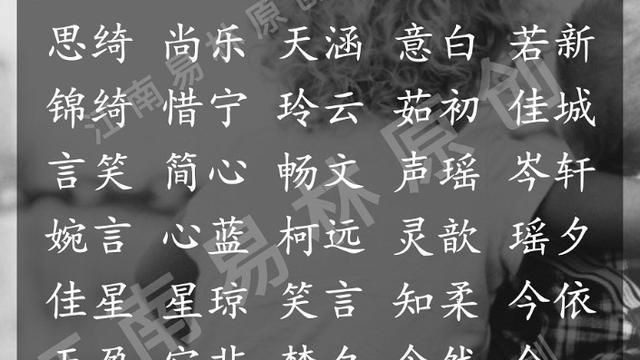 思绮 尚乐 天涵 意白 若新
锦绮 惜宁 玲云 茹初 佳城
言笑 简心 畅文 声瑶 岑轩
婉言 心蓝 柯远 灵歆 瑶夕
佳星 星琼 笑言 知柔 今依
江南易林原创